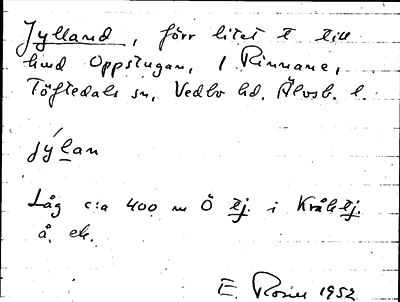 Jylland, förr litet t till
hmd Oppstugan, 1 Rinnane,
Töftedals sn, Vedbo hd. Älvsb. l.
jy´lan
Låg c:a 400 m Ö tj. i Kråktj.
å. ek.
E. Rosén 1952